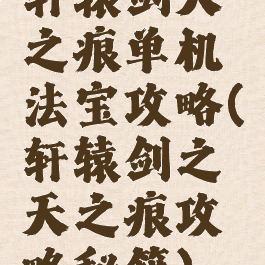 轩辕剑天
之痕单机
法宝攻略(
轩辕剑之
天之痕攻
略秘籍)